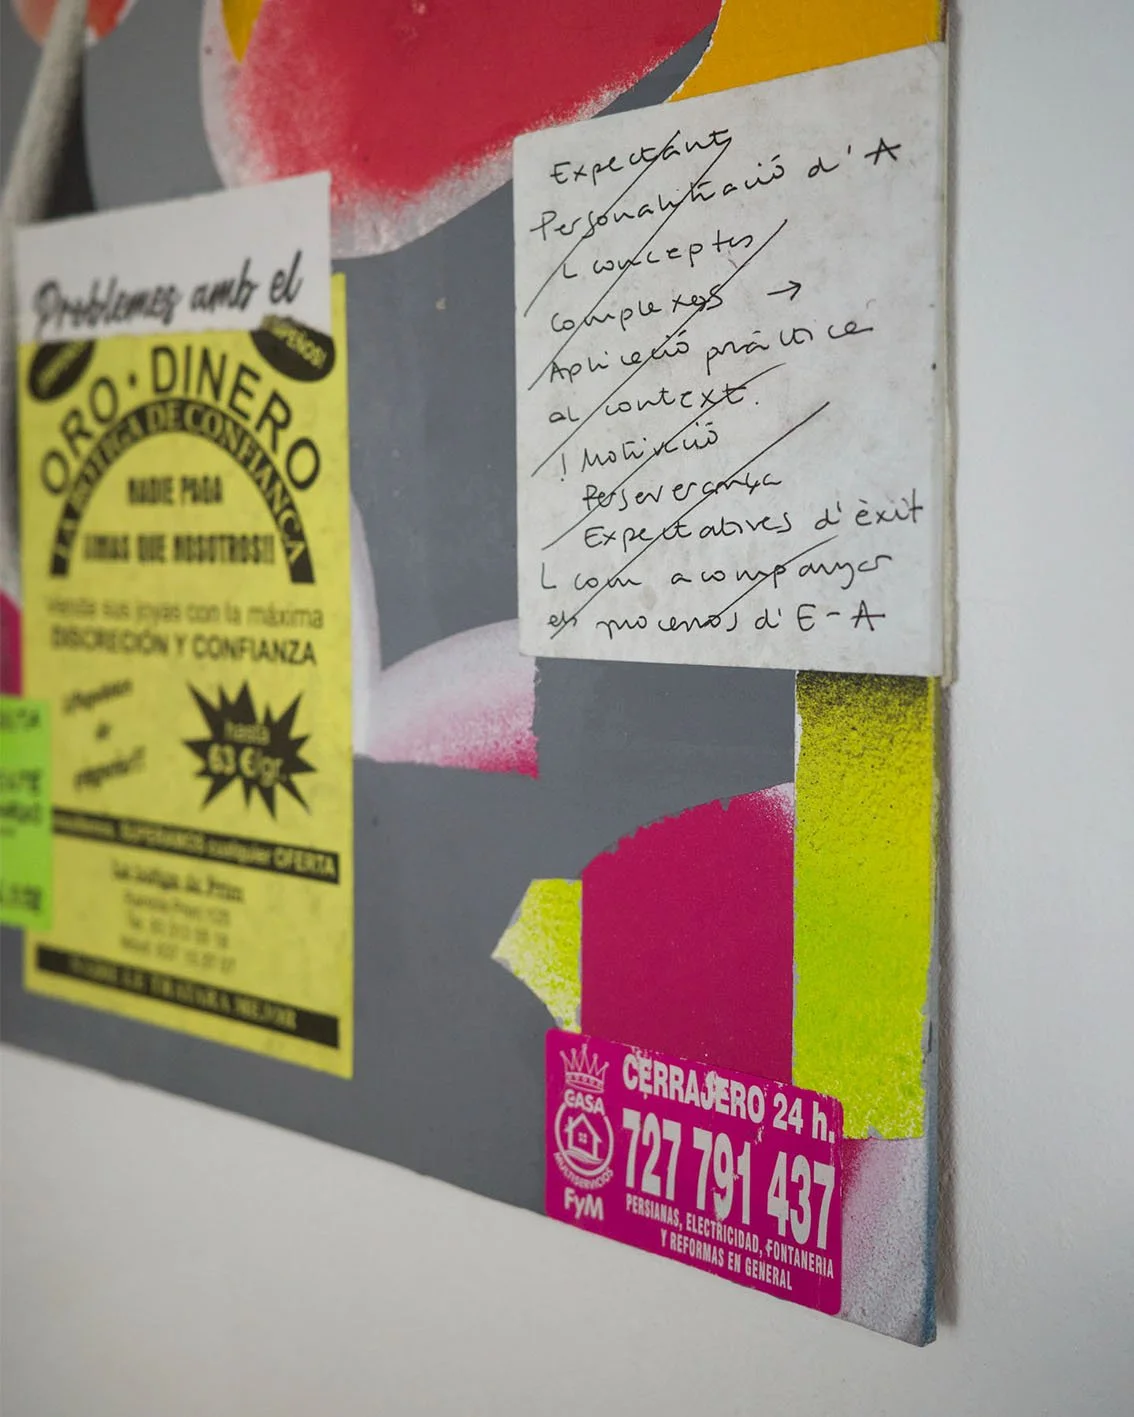 Problemes amb el
ORO · DINERO
LA BOTIGA DE CONFIANÇA
NADIE PAGA
¡¡MAS QUE NOSOTROS!!
Venda sus joyas con la máxima
DISCRECIÓN Y CONFIANZA
de
hasta
63 €/gr.
SUPERAMOS cualquier OFERTA
La botiga de Prim
Expectant
Personalització d'A
L conceptes
complexos →
Aplicació pràctica
al context.
! Motivació
Perseverança
Expectatives d'èxit
L com acompanyar
els processos d'E-A
CASA
MULTISERVICIOS
FyM
CERRAJERO 24 h.
727 791 437
PERSIANAS, ELECTRICIDAD, FONTANERIA
Y REFORMAS EN GENERAL